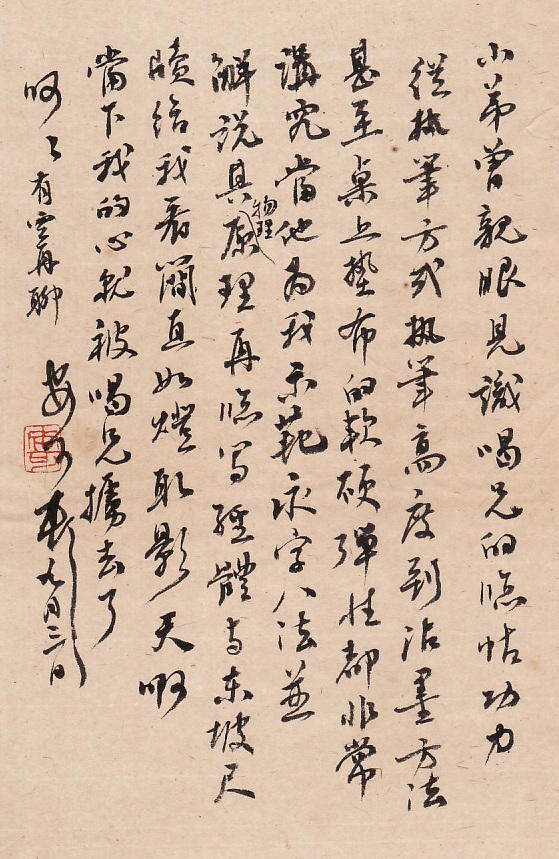 小弟曾親眼見識喝兄的臨帖功力
從執筆方式執筆高度到沾墨方法
甚至桌上墊布的軟硬彈性都非常
講究當他為我示範永字八法並
解說其物理原理再臨寫經體與東坡尺
牘給我看簡直如燈取影天啊
當下我的心就被喝兄擄去了
呵呵有空再聊
九月三日